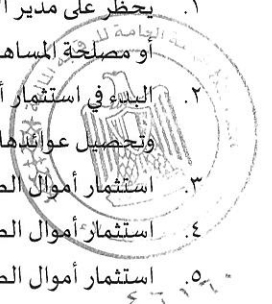 ١. يحظر على مدير ا
أو مصلحة المساه
٢. البدء في استثمار أ
وتحصيل عوائدها
٣. استثمار أموال الص
٤. استثمار أموال الص
٥. استثمار أموال الص